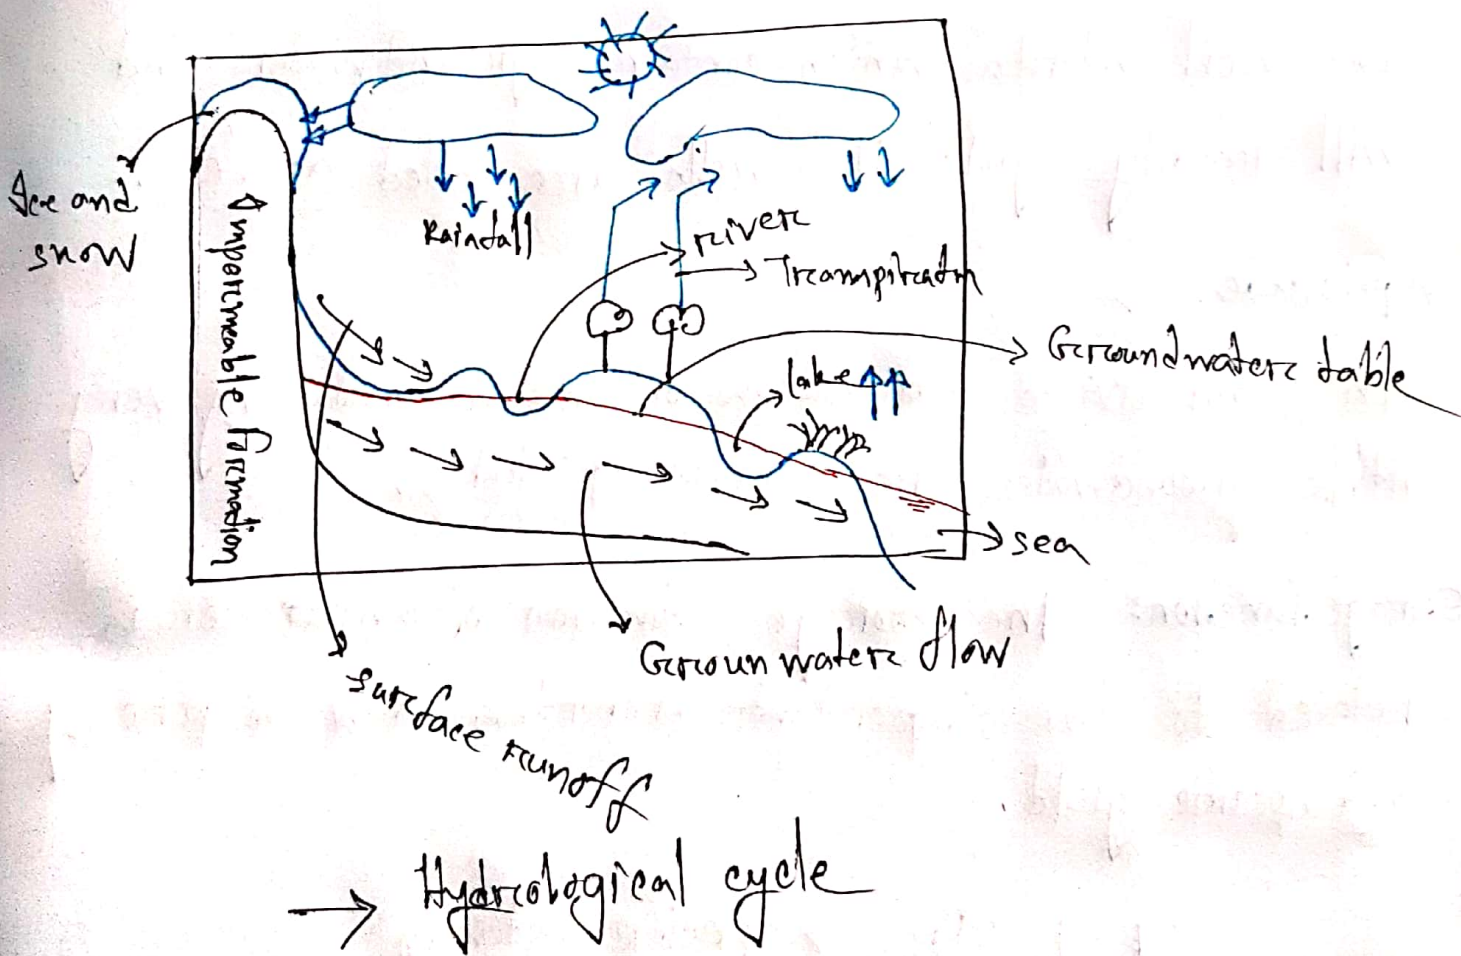 Ice and
snow
Impormeable formation
Rainfall
river
Transpiratn
Groundwater table
lake
sea
Groun water flow
surface runoff
→ Hydrological cycle